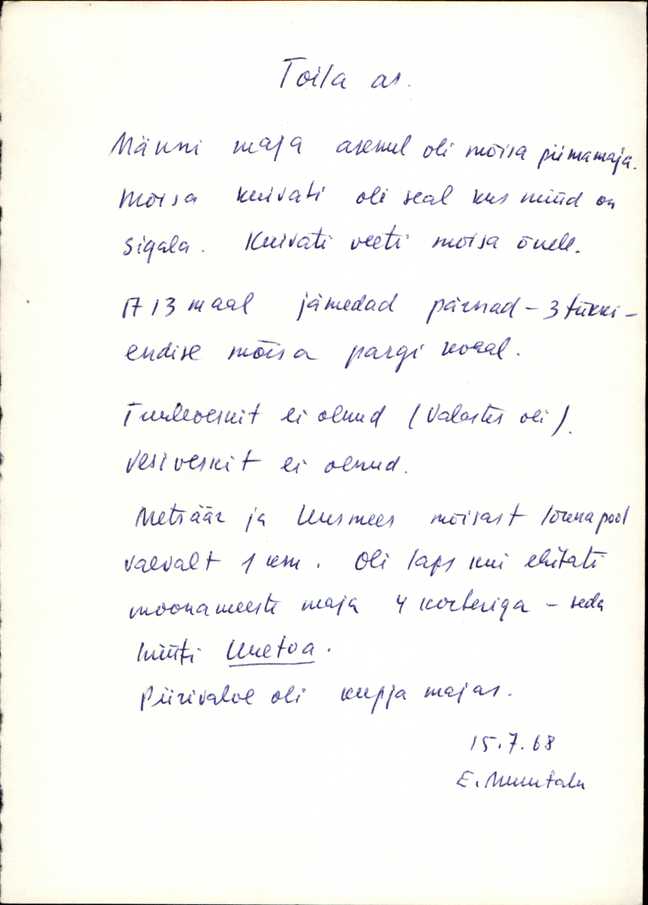 Toila as.
Männi maja asemel oli mõisa piimamaja.
Mõisa kuivati oli seal kus nüüd on
sigala. Kuivati veeti mõisa õuele.
1713 maal jämedad pärnad – 3 tükki –
endise mõisa pargi kohal.
Tuuleveskit ei olnud (Valastes oli).
Vesiveskit ei olnud.
Metsäär ja Uusmees mõisast lõunapool
vaevalt 1 km. Oli laps kui ehitati
moonameeste maja 4 korteriga – seda
hüüti Uuetoa.
Piirivalve oli kupja majas.
15.7.68
E.